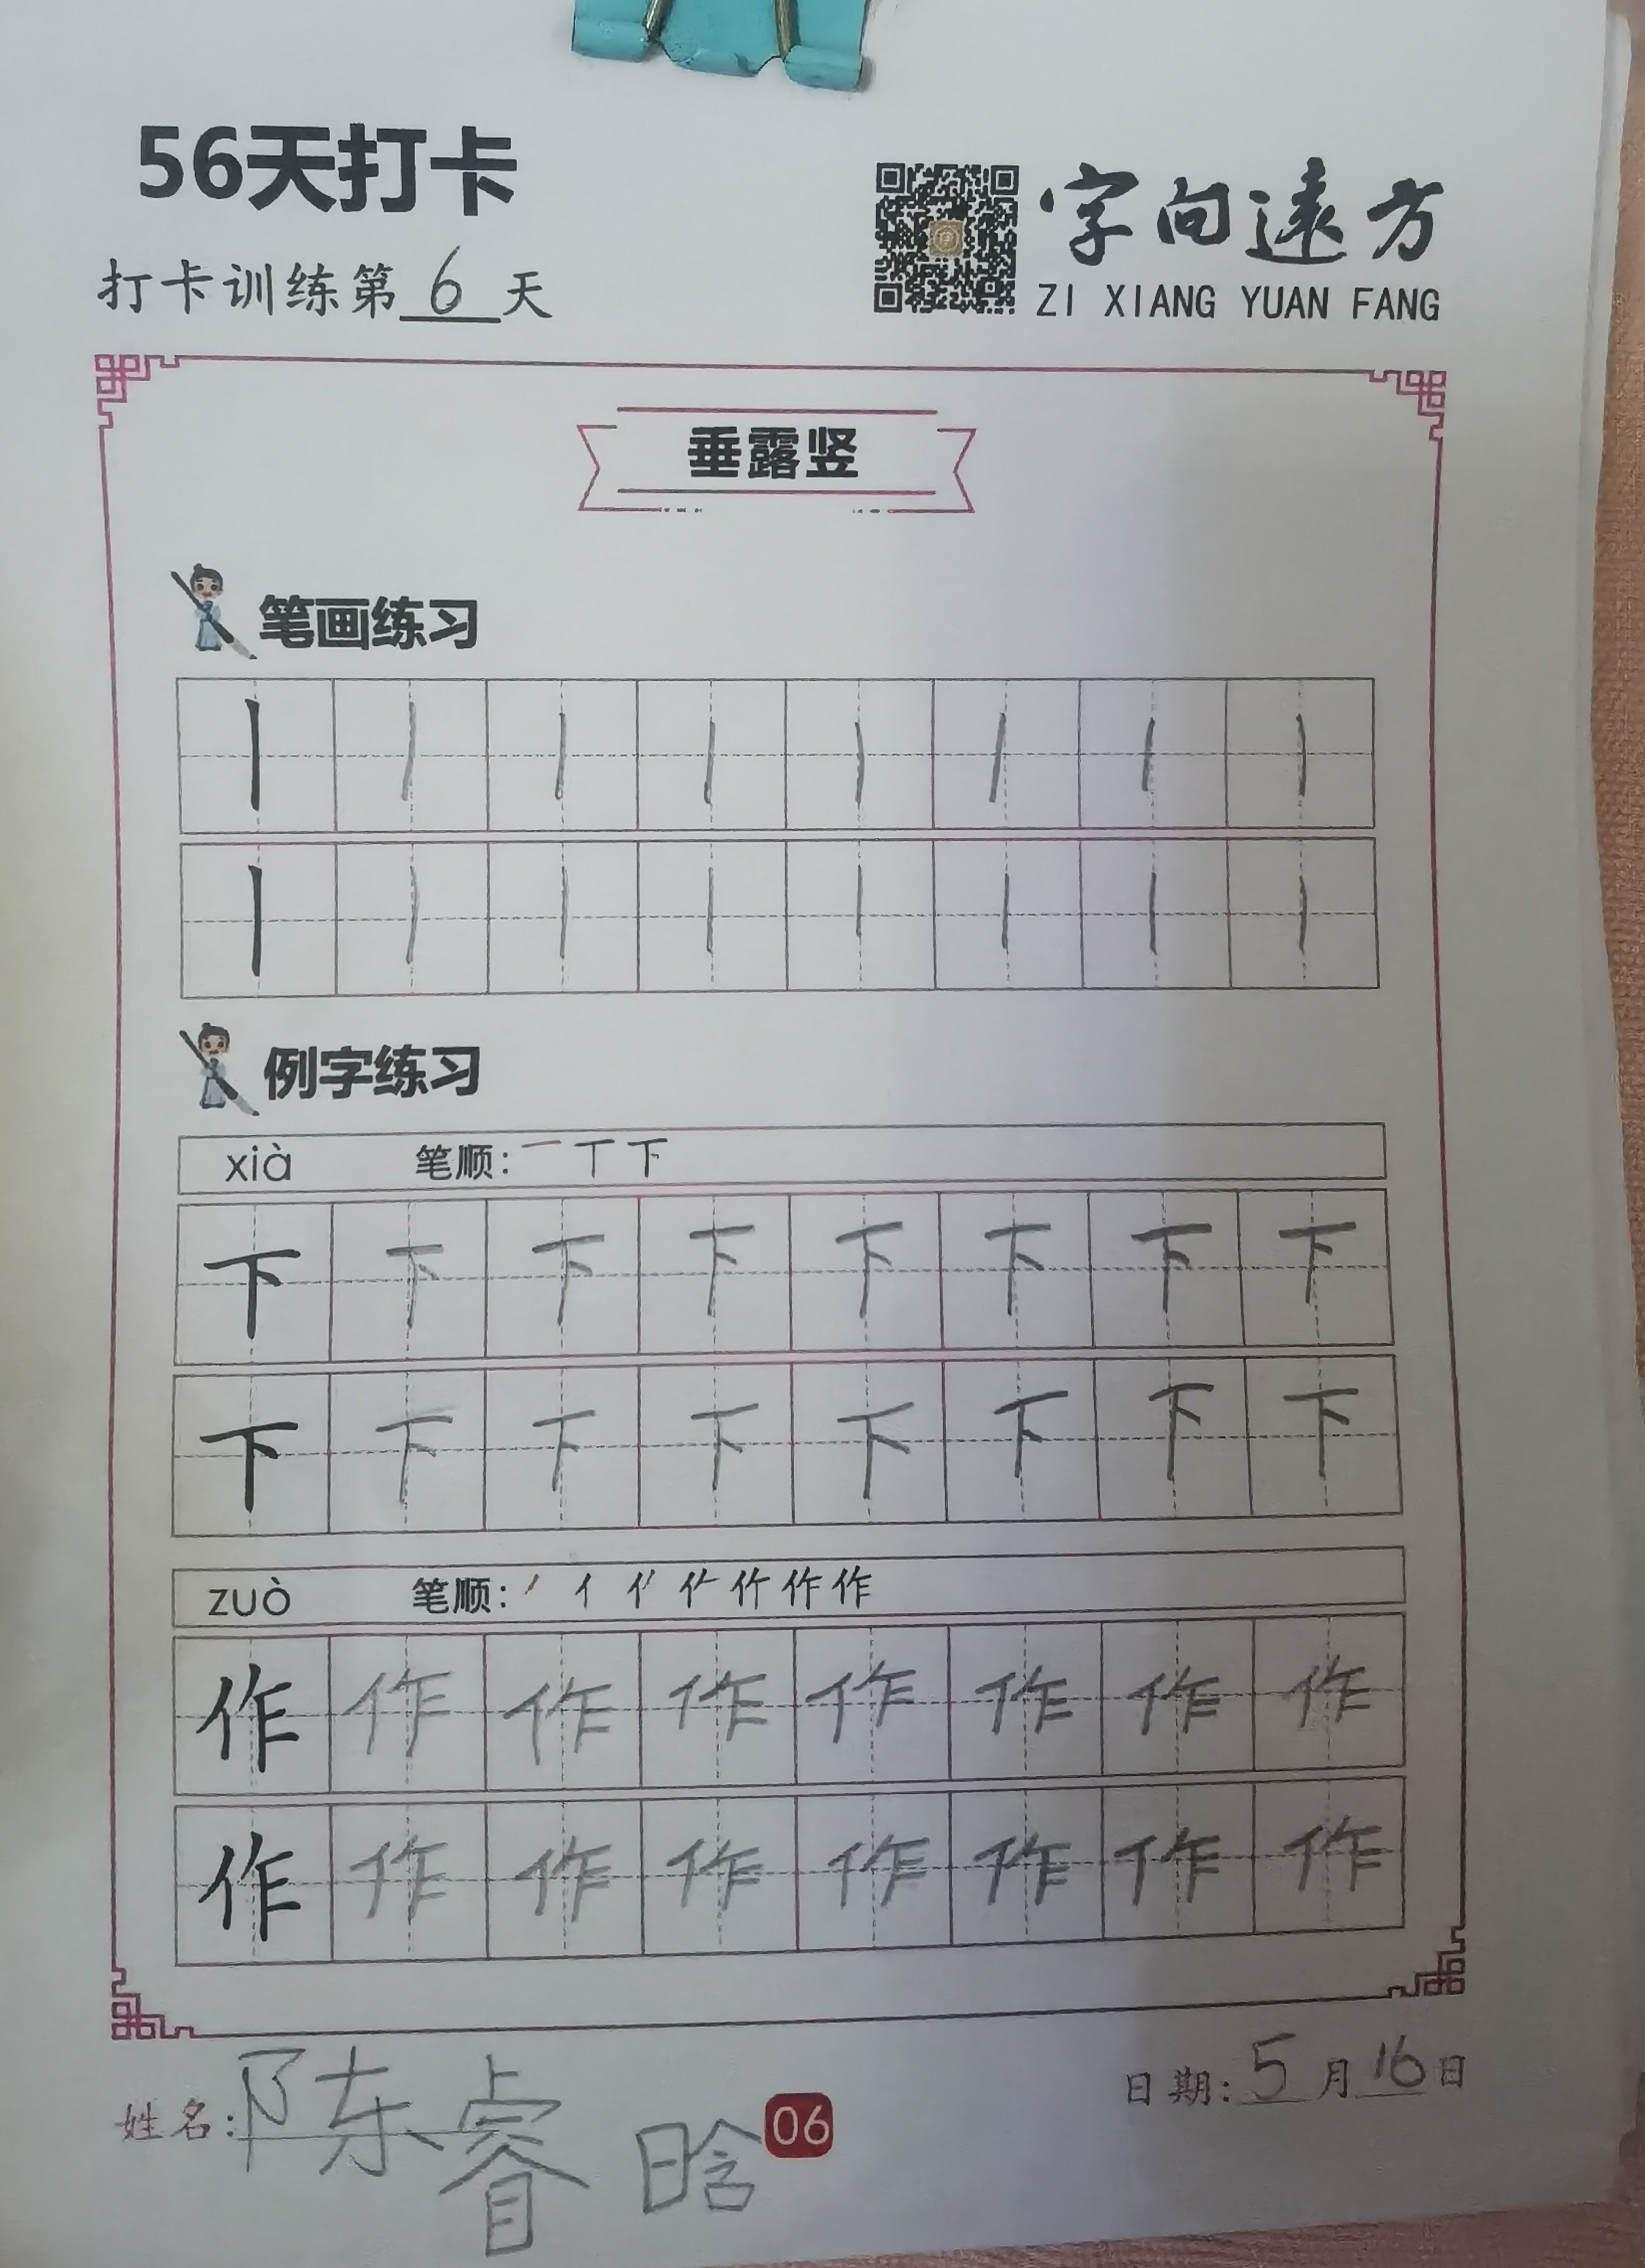 56天打卡
字向遠方
打卡训练第6天
ZI XIANG YUAN FANG
垂露竖
笔画练习
丨丨丨丨丨丨丨丨
丨丨丨丨丨丨丨丨
例字练习
xià 笔顺：一丅下
下下下下下下下下
下下下下下下下下
zuò 笔顺：丿亻作
作作作作作作作作
作作作作作作作作
姓名：陈睿晗
06
日期：5月16日